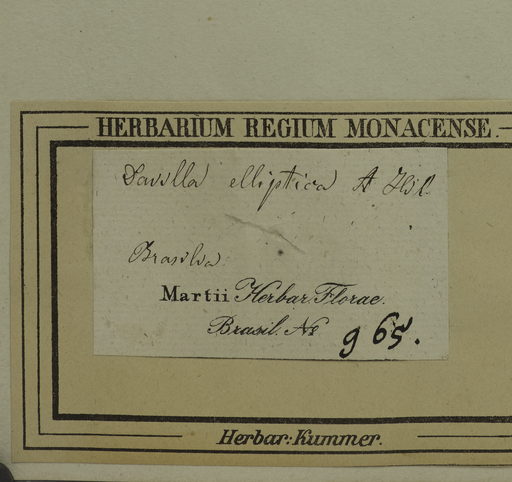 HERBARIUM REGIUM MONACENSE.
Davilla elliptica A Hil.
Brasilia
Martii Herbar. Florae.
Brasil. No
965.
Herbar: Kummer.